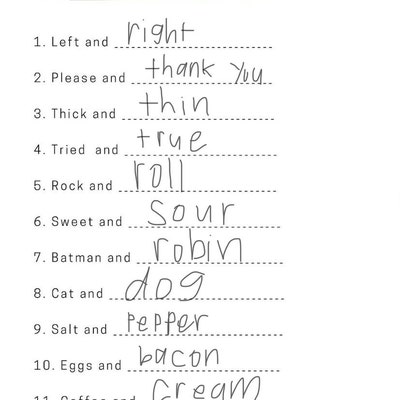 1. Left and right
2. Please and thank you
3. Thick and thin
4. Tried and true
5. Rock and roll
6. Sweet and sour
7. Batman and robin
8. Cat and dog
9. Salt and PePPer
10. Eggs and bacon
11. Coffee and cream